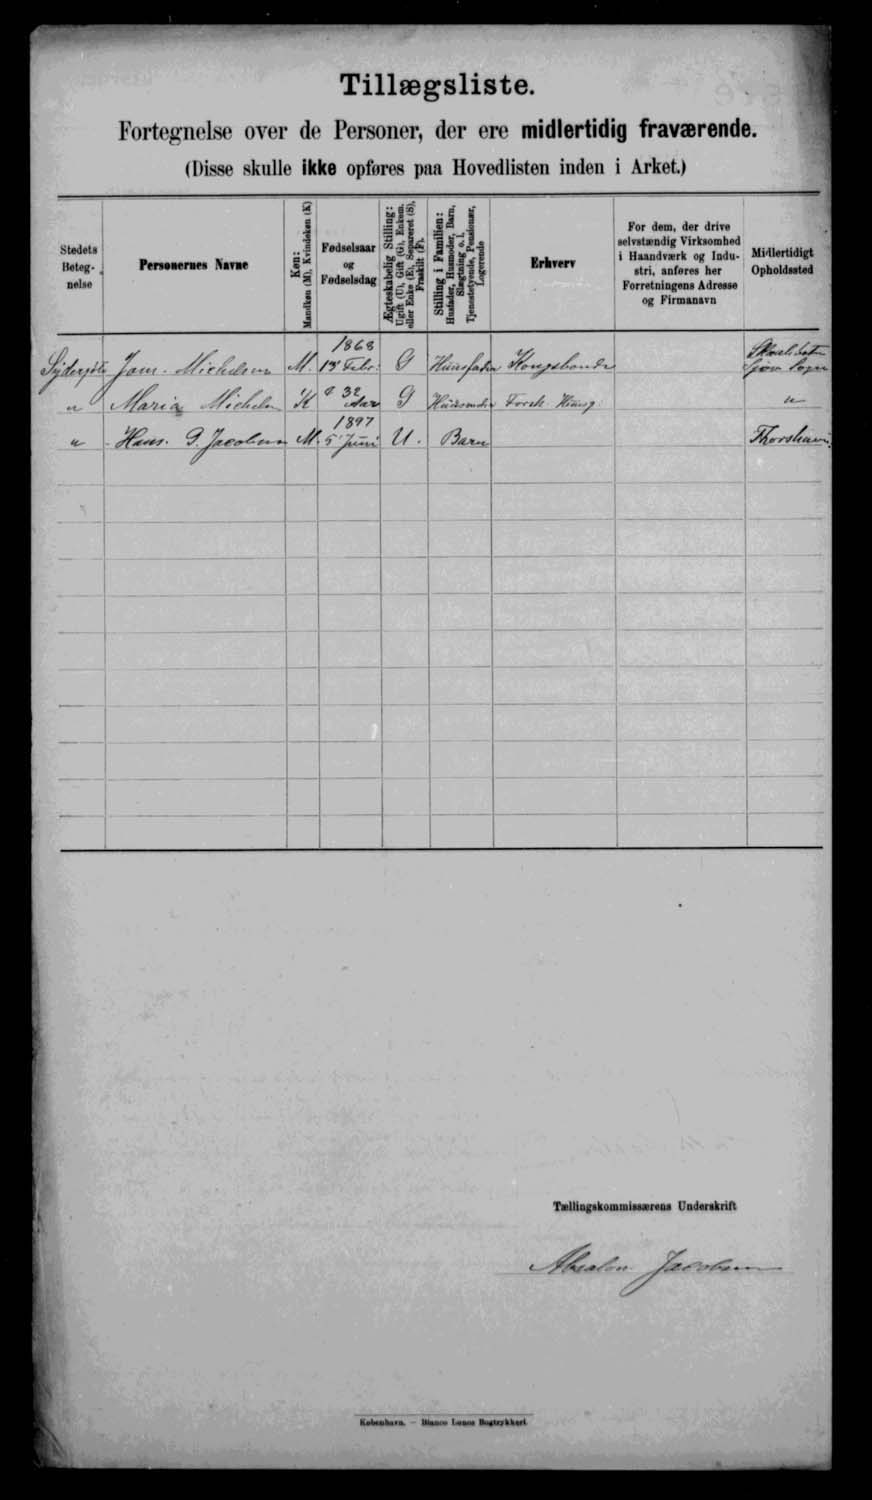 Tillægsliste.
Fortegnelse over de Personer, der ere midlertidig fraværende.
(Disse skulle ikke opføres paa Hovedlisten inden i Arket.)
Stedets Beteg-nelse
Personernes Navne
Køn: Mandkøn (M), Kvindekøn (K)
Fødselsaar og Fødselsdag
Ægteskabelig Stilling: Ugift (U), Gift (G), Enkem. eller Enke (E), Separeret (S), Fraskilt (F).
Stilling i Familien: Husfader, Husmoder, Barn, Slægtning o. l., Tjenestetyende, Pensionær, Logerende
Erhverv
For dem, der drive selvstændig Virksomhed i Haandværk og Indu-stri, anføres her Forretningens Adresse og Firmanavn
Midlertidigt Opholdssted
Michelsen M. 1868 13 Febr: G Huusfader Kongsbonde Sogn
" Maria Michelsen K 32 Aar G "
" Hans. Jacobsen M. 1897 5 Juni U. Barn Thorshavn.
Tællingskommissærens Underskrift
Absalon Jacobsen
København. — Bianco Lunos Bogtrykkeri